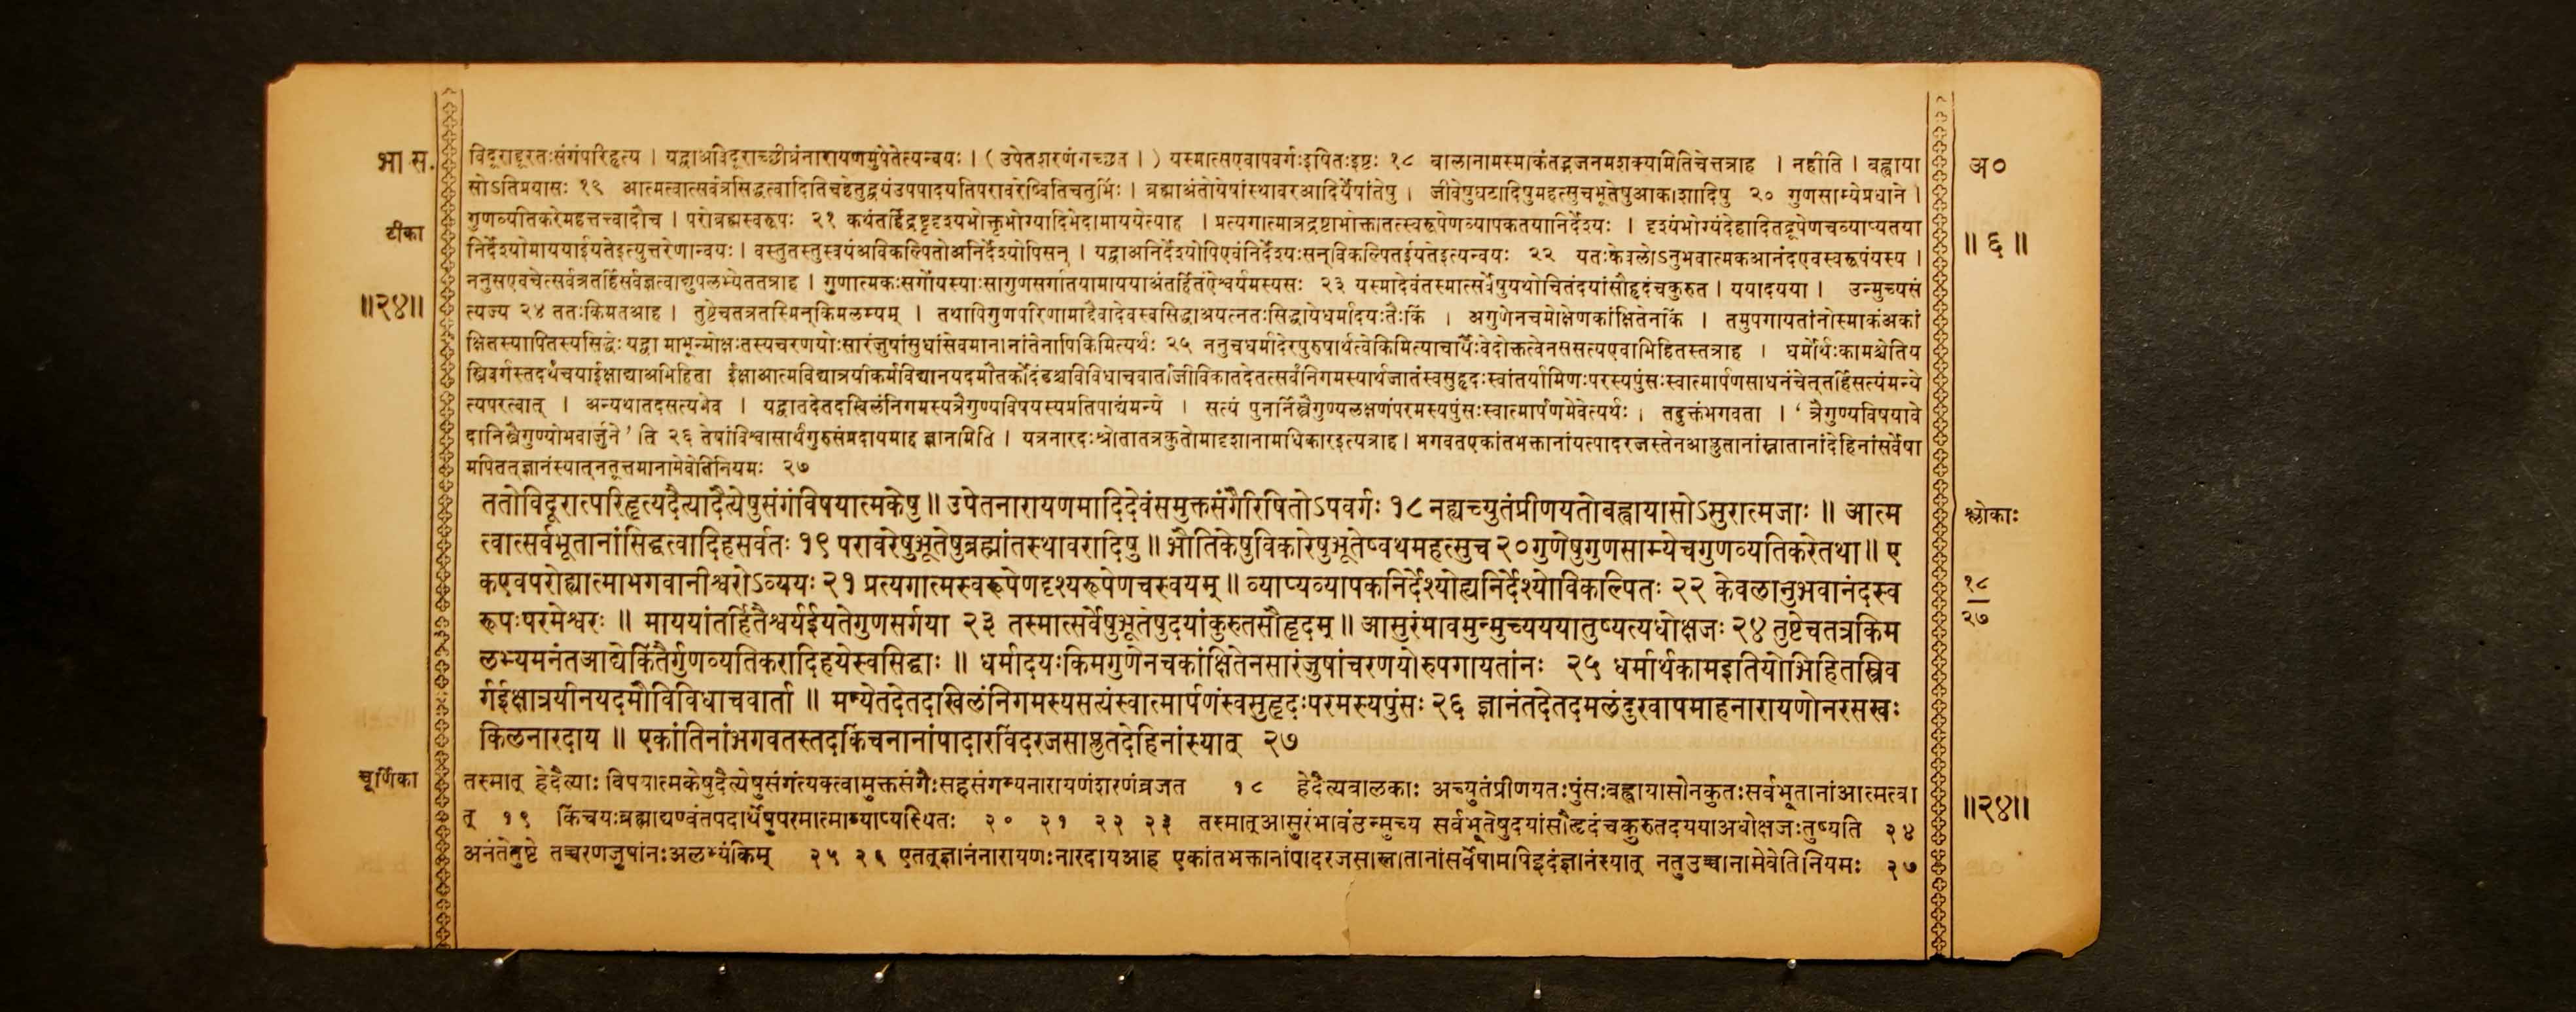 भा स. विदूराद्दूरतःसंगंपरिहृत्य । यद्वाअविदूराच्छीघ्रंनारायणमुपेतेत्यन्वयः । ( उपेतशरणंगच्छत । ) यस्मात्सएवापवर्गःइषितःइष्टः १८ बालानामस्माकंतद्भजनमशक्यामितिचेत्तत्राह । नहीति । बह्वाया अ०
सोऽतिप्रयासः १९ आत्मत्वात्सर्वत्रसिद्धत्वादितिचहेतुद्वयंउपपादयतिपरावरेष्वितिचतुर्भिः । ब्रह्माअंतोयेषांस्थावरआदिर्येषांतेषु । जीवेषुघटादिषुमहत्सुचभूतेषुआकाशादिषु २० गुणसाम्येप्रधाने ।
टीका गुणव्यतिकरेमहत्तत्त्वादौच । परोब्रह्मस्वरूपः २१ कथंतर्हिद्रष्टृदृश्यभोक्तृभोग्यादिभेदामाययेत्याह । प्रत्यगात्मात्रद्रष्टाभोक्तातत्स्वरूपेणव्यापकतयानिर्देश्यः । दृश्यंभोग्यंदेहादितद्रूपेणचव्याप्यतया
निर्देश्योमाययाईयतेइत्युत्तरेणान्वयः । वस्तुतस्तुस्वयंअविकल्पितोअनिर्देश्योपिसन् । यद्वाअनिर्देश्योपिएवंनिर्देश्यःसन्विकल्पितईयतेइत्यन्वयः २२ यतःकेवलोऽनुभवात्मकआनंदएवस्वरूपंयस्य । ॥ ६ ॥
ननुसएवचेत्सर्वत्रतर्हिसर्वज्ञत्वाद्युपलभ्येततत्राह । गुणात्मकःसर्गोयस्याःसागुणसर्गातयामाययाअंतर्हितंऐश्वर्यमस्यसः २३ यस्मादेवंतस्मात्सर्वेषुयथोचितंदयांसौहृदंचकुरुत । ययादयया । उन्मुच्यसं
॥२४॥ त्यज्य २४ ततःकिमतआह । तुष्टेचतत्रतस्मिन्किमलभ्यम् । तथापिगुणपरिणामाद्दैवादेवस्वसिद्धाअयत्नतःसिद्धायेधर्मादयःतैःकिं । अगुणेनचमोक्षेणकांक्षितेनकिं । तमुपगायतांनोस्माकंअकां
क्षितस्यापितस्यसिद्धेः यद्वा माभून्मोक्षःतस्यचरणयोःसारंजुषांसुधांसेवमानानांतेनापिकिमित्यर्थः २५ ननुचधर्मादेरपुरुषार्थत्वेकिमित्याचार्यैःवेदोक्तत्वेनससत्यएवाभिहितस्तत्राह । धर्मोर्थःकामश्चेतिय
स्त्रिवर्गस्तदर्थंचयाईक्षाद्याअभिहिता ईक्षाआत्मविद्यात्रयीकर्मविद्यानयदमौतर्कोदंडश्चविविधाचवार्ताजीविकातदेतत्सर्वंनिगमस्यार्थजातंस्वसुहृदःस्वांतर्यामिणःपरस्यपुंसःस्वात्मार्पणसाधनंचेत्तर्हिसत्यंमन्ये
त्यपरत्वात् । अन्यथातदसत्यमेव । यद्वातदेतदखिलंनिगमस्यत्रैगुण्यविषयस्यप्रतिपाद्यंमन्ये । सत्यं पुनर्निस्त्रैगुण्यलक्षणंपरमस्यपुंसःस्वात्मार्पणमेवेत्यर्थः । तदुक्तंभगवता । ‘ त्रैगुण्यविषयावे
दानिस्त्रैगुण्योभवार्जुने ’ ति २६ तेषांविश्वासार्थंगुरुसंप्रदायमाह ज्ञानमिति । यत्रनारदःश्रोतातत्रकुतोमादृशानामाधिकारइत्यत्राह । भगवतएकांतभक्तानांयत्पादरजस्तेनआप्लुतानांस्नातानांदेहिनांसर्वेषा
मपितत्ज्ञानंस्यात्नतूत्तमानामेवेतिनियमः २७
ततोविदूरात्परिहृत्यदैत्यादैत्येषुसंगंविषयात्मकेषु ॥ उपेतनारायणमादिदेवंसमुक्तसंगैरिषितोऽपवर्गः १८ नह्यच्युतंप्रीणयतोबह्वायासोऽसुरात्मजाः ॥ आत्म श्लोकाः
त्वात्सर्वभूतानांसिद्धत्वादिहसर्वतः १९ परावरेषुभूतेषुब्रह्मांतस्थावरादिषु ॥ भौतिकेषुविकारेषुभूतेष्वथमहत्सुच २० गुणेषुगुणसाम्येचगुणव्यतिकरेतथा ॥ ए
कएवपरोह्यात्माभगवानीश्वरोऽव्ययः २१ प्रत्यगात्मस्वरूपेणदृश्यरूपेणचस्वयम् ॥ व्याप्यव्यापकनिर्देश्योह्यनिर्देश्योविकल्पितः २२ केवलानुभवानंदस्व १८
रूपःपरमेश्वरः ॥ माययांतर्हितैश्वर्यईयतेगुणसर्गया २३ तस्मात्सर्वेषुभूतेषुदयांकुरुतसौहृदम् ॥ आसुरंभावमुन्मुच्यययातुष्यत्यधोक्षजः २४ तुष्टेचतत्रकिम २७
लभ्यमनंतआद्येकिंतैर्गुणव्यतिकरादिहयेस्वसिद्धाः ॥ धर्मादयःकिमगुणेनचकांक्षितेनसारंजुषांचरणयोरुपगायतांनः २५ धर्मार्थकामइतियोभिहितस्त्रिव
र्गईक्षात्रयीनयदमौविविधाचवार्ता ॥ मन्येतदेतदखिलंनिगमस्यसत्यंस्वात्मार्पणंस्वसुहृदःपरमस्यपुंसः २६ ज्ञानंतदेतदमलंदुरवापमाहनारायणोनरसखः
किलनारदाय ॥ एकांतिनांभगवतस्तदकिंचनानांपादारविंदरजसाप्लुतदेहिनांस्यात् २७
चूर्णिका तस्मात् हेदैत्याः विषयात्मकेषुदैत्येषुसंगंत्यक्त्वामुक्तसंगैःसहसंगम्यनारायणंशरणंव्रजत १८ हेदैत्यबालकाः अच्युतंप्रीणयतःपुंसःबह्वायासोनकुतःसर्वभूतानांआत्मत्वा
त् १९ किंचयःब्रह्माद्यण्वंतपदार्थेषुपरमात्माव्याप्यस्थितः २० २१ २२ २३ तस्मात्आसुरंभावंउन्मुच्य सर्वभूतेषुदयांसौहृदंचकुरुतदययाअधोक्षजःतुष्यति २४ ॥२४॥
अनंतेतुष्टे तच्चरणजुषांनःअलभ्यंकिम् २५ २६ एतत्ज्ञानंनारायणःनारदायआह एकांतभक्तानांपादरजसास्नातानांसर्वेषामपिइदंज्ञानंस्यात् नतुउच्चानामेवेतिनियमः २७